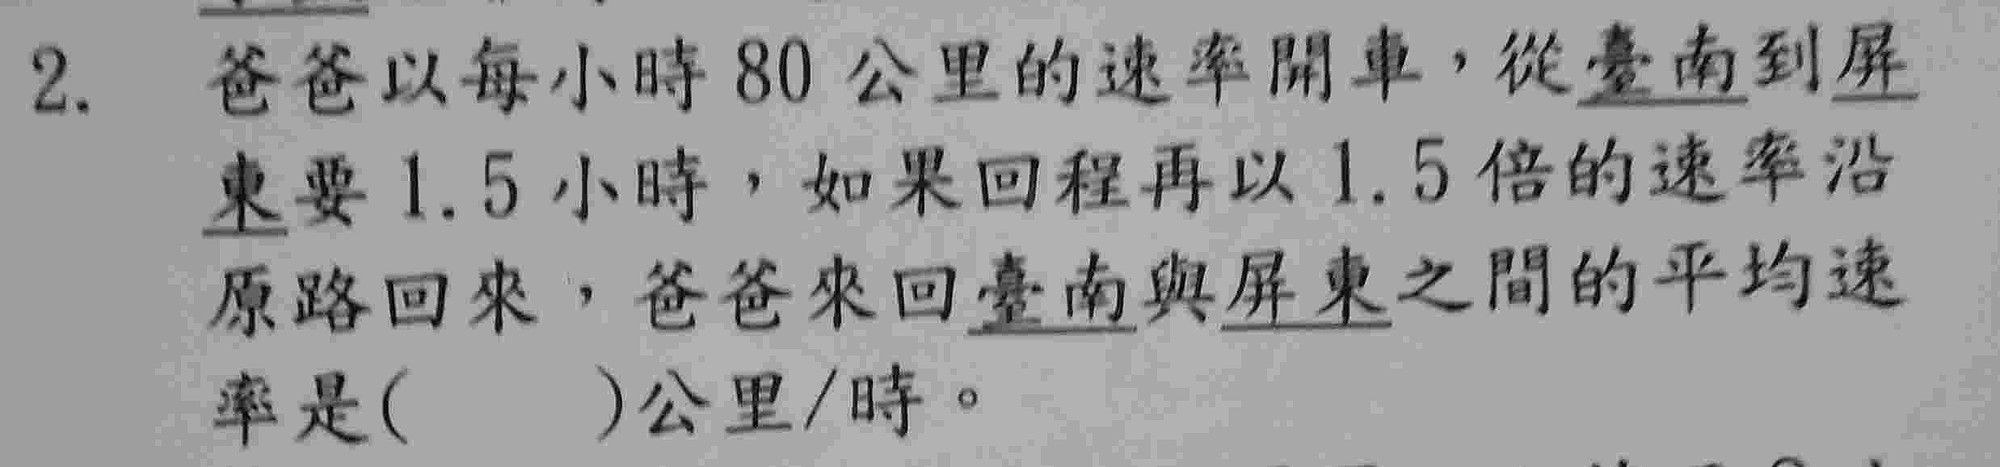 2. 爸爸以每小時 80 公里的速率開車，從臺南到屏
東要 1.5 小時，如果回程再以 1.5 倍的速率沿
原路回來，爸爸來回臺南與屏東之間的平均速
率是(　　)公里/時。